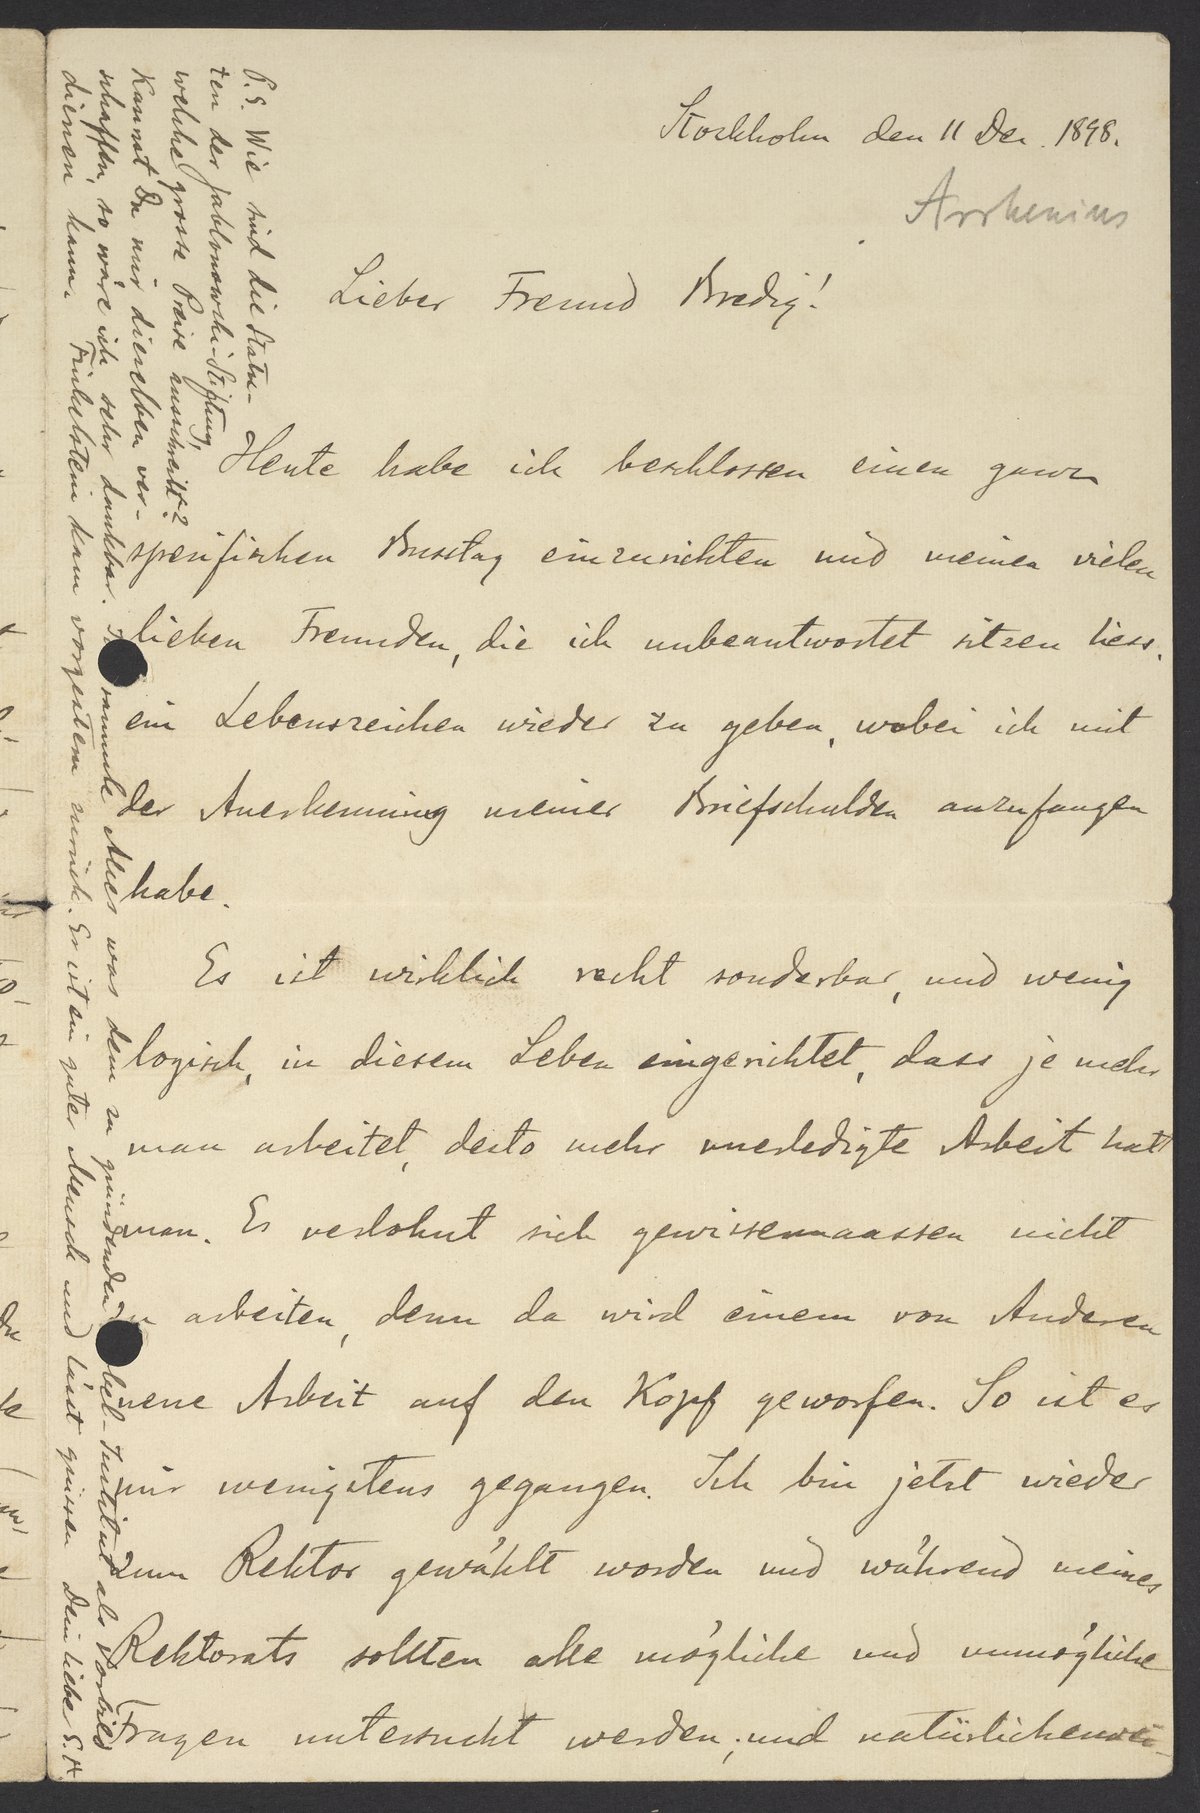 Stockholm den 11 Dec. 1898.
Arrhenius
Lieber Freund Bredig!
Heute habe ich beschlossen einen ganz
spezifischen Busstag einzurichten und meinen vielen
lieben Freunden, die ich unbeantwortet sitzen liess,
ein Lebenszeichen wieder zu geben, wobei ich mit
der Anerkennung meiner Briefschulden anzufangen
habe.
Es ist wirklich recht sonderbar, und wenig
logisch, in diesem Leben eingerichtet, dass je mehr
man arbeitet, desto mehr unerledigte Arbeit hat
man. Es verlohnt sich gewissermaassen nicht
zu arbeiten, denn da wird einem von Anderen
neue Arbeit auf den Kopf geworfen. So ist es
mir wenigstens gegangen. Ich bin jetzt wieder
zum Rektor gewählt worden und während meines
Rektorats sollten alle mögliche und unmögliche
Fragen untersucht werden; und natürlicherwei-
P.S. Wie sind die Statu-
ten der Jablonowski-Stiftung,
welche grosse Preise ausschreibt?
Kannst Du mir dieselben ver-
schaffen, so wäre ich sehr dankbar. sammle Alles was dem zu gründenden Nobel-Institut als Vorbild
dienen kann. Finkelstein kam vorgestern zurück. Er ist ein guter Mensch und lässt grüssen Dein liebe S.A.